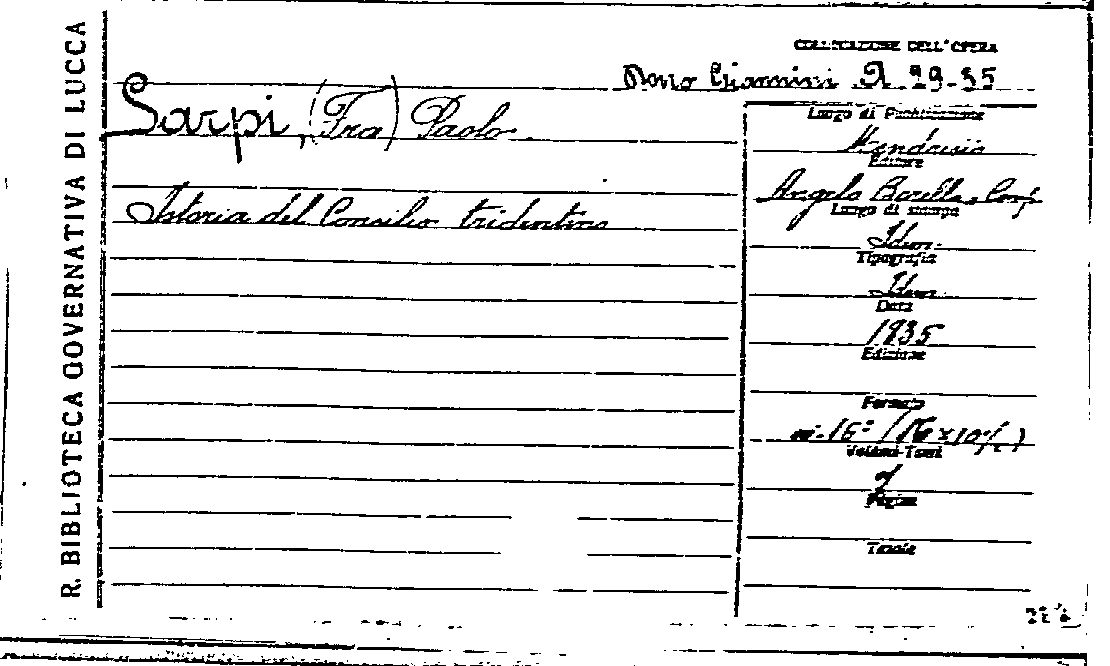 R. BIBLIOTECA GOVERNATIVA DI LUCCA
COLLOCAZIONE DELL'OPERA
Dono Giannini A. 29-35
Sarpi, (Fra) Paolo.
Istoria del Consilio tridentino
Luogo di Pubblicazione
Mendrisio
Editore
Angelo Borella, Comp.
Luogo di stampa
Idem
Tipografia
Idem
Data
1835
Edizione
Formato
in-16°
Volumi-Tomi
7
Pagine
Tavole